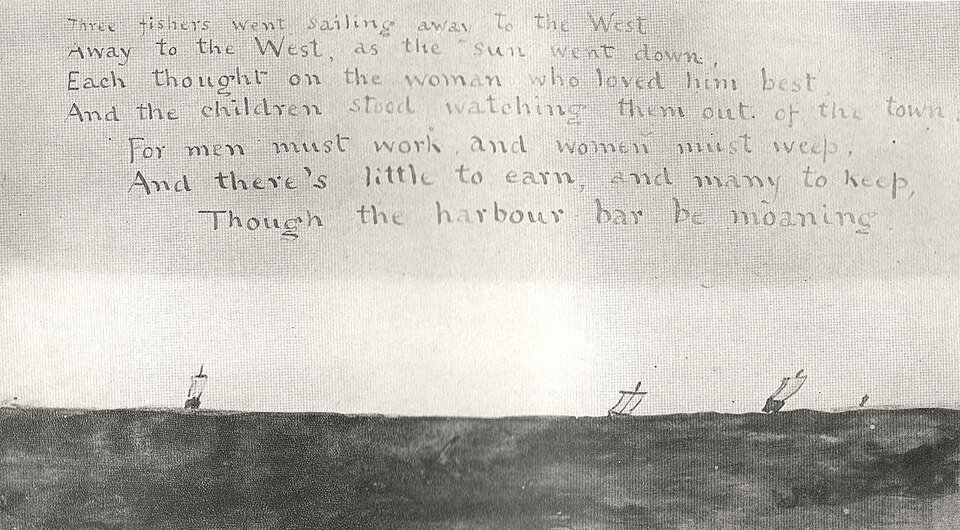 Three fishers went sailing away to the West
Away to the West, as the sun went down,
Each thought on the woman who loved him best,
And the children stood watching them out of the town;
For men must work, and women must weep,
And there's little to earn, and many to keep,
Though the harbour bar be moaning.